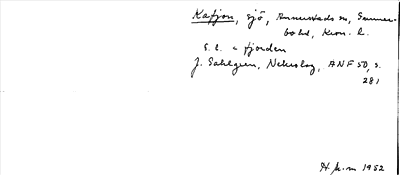 Kafjon, sjö, Annerstads sn, Sunner-
bo hd, Kron. l.
S. l. = fjorden
J. Sahlgren, Nekrolog, ANF 50, s.
281
H. k-m 1952